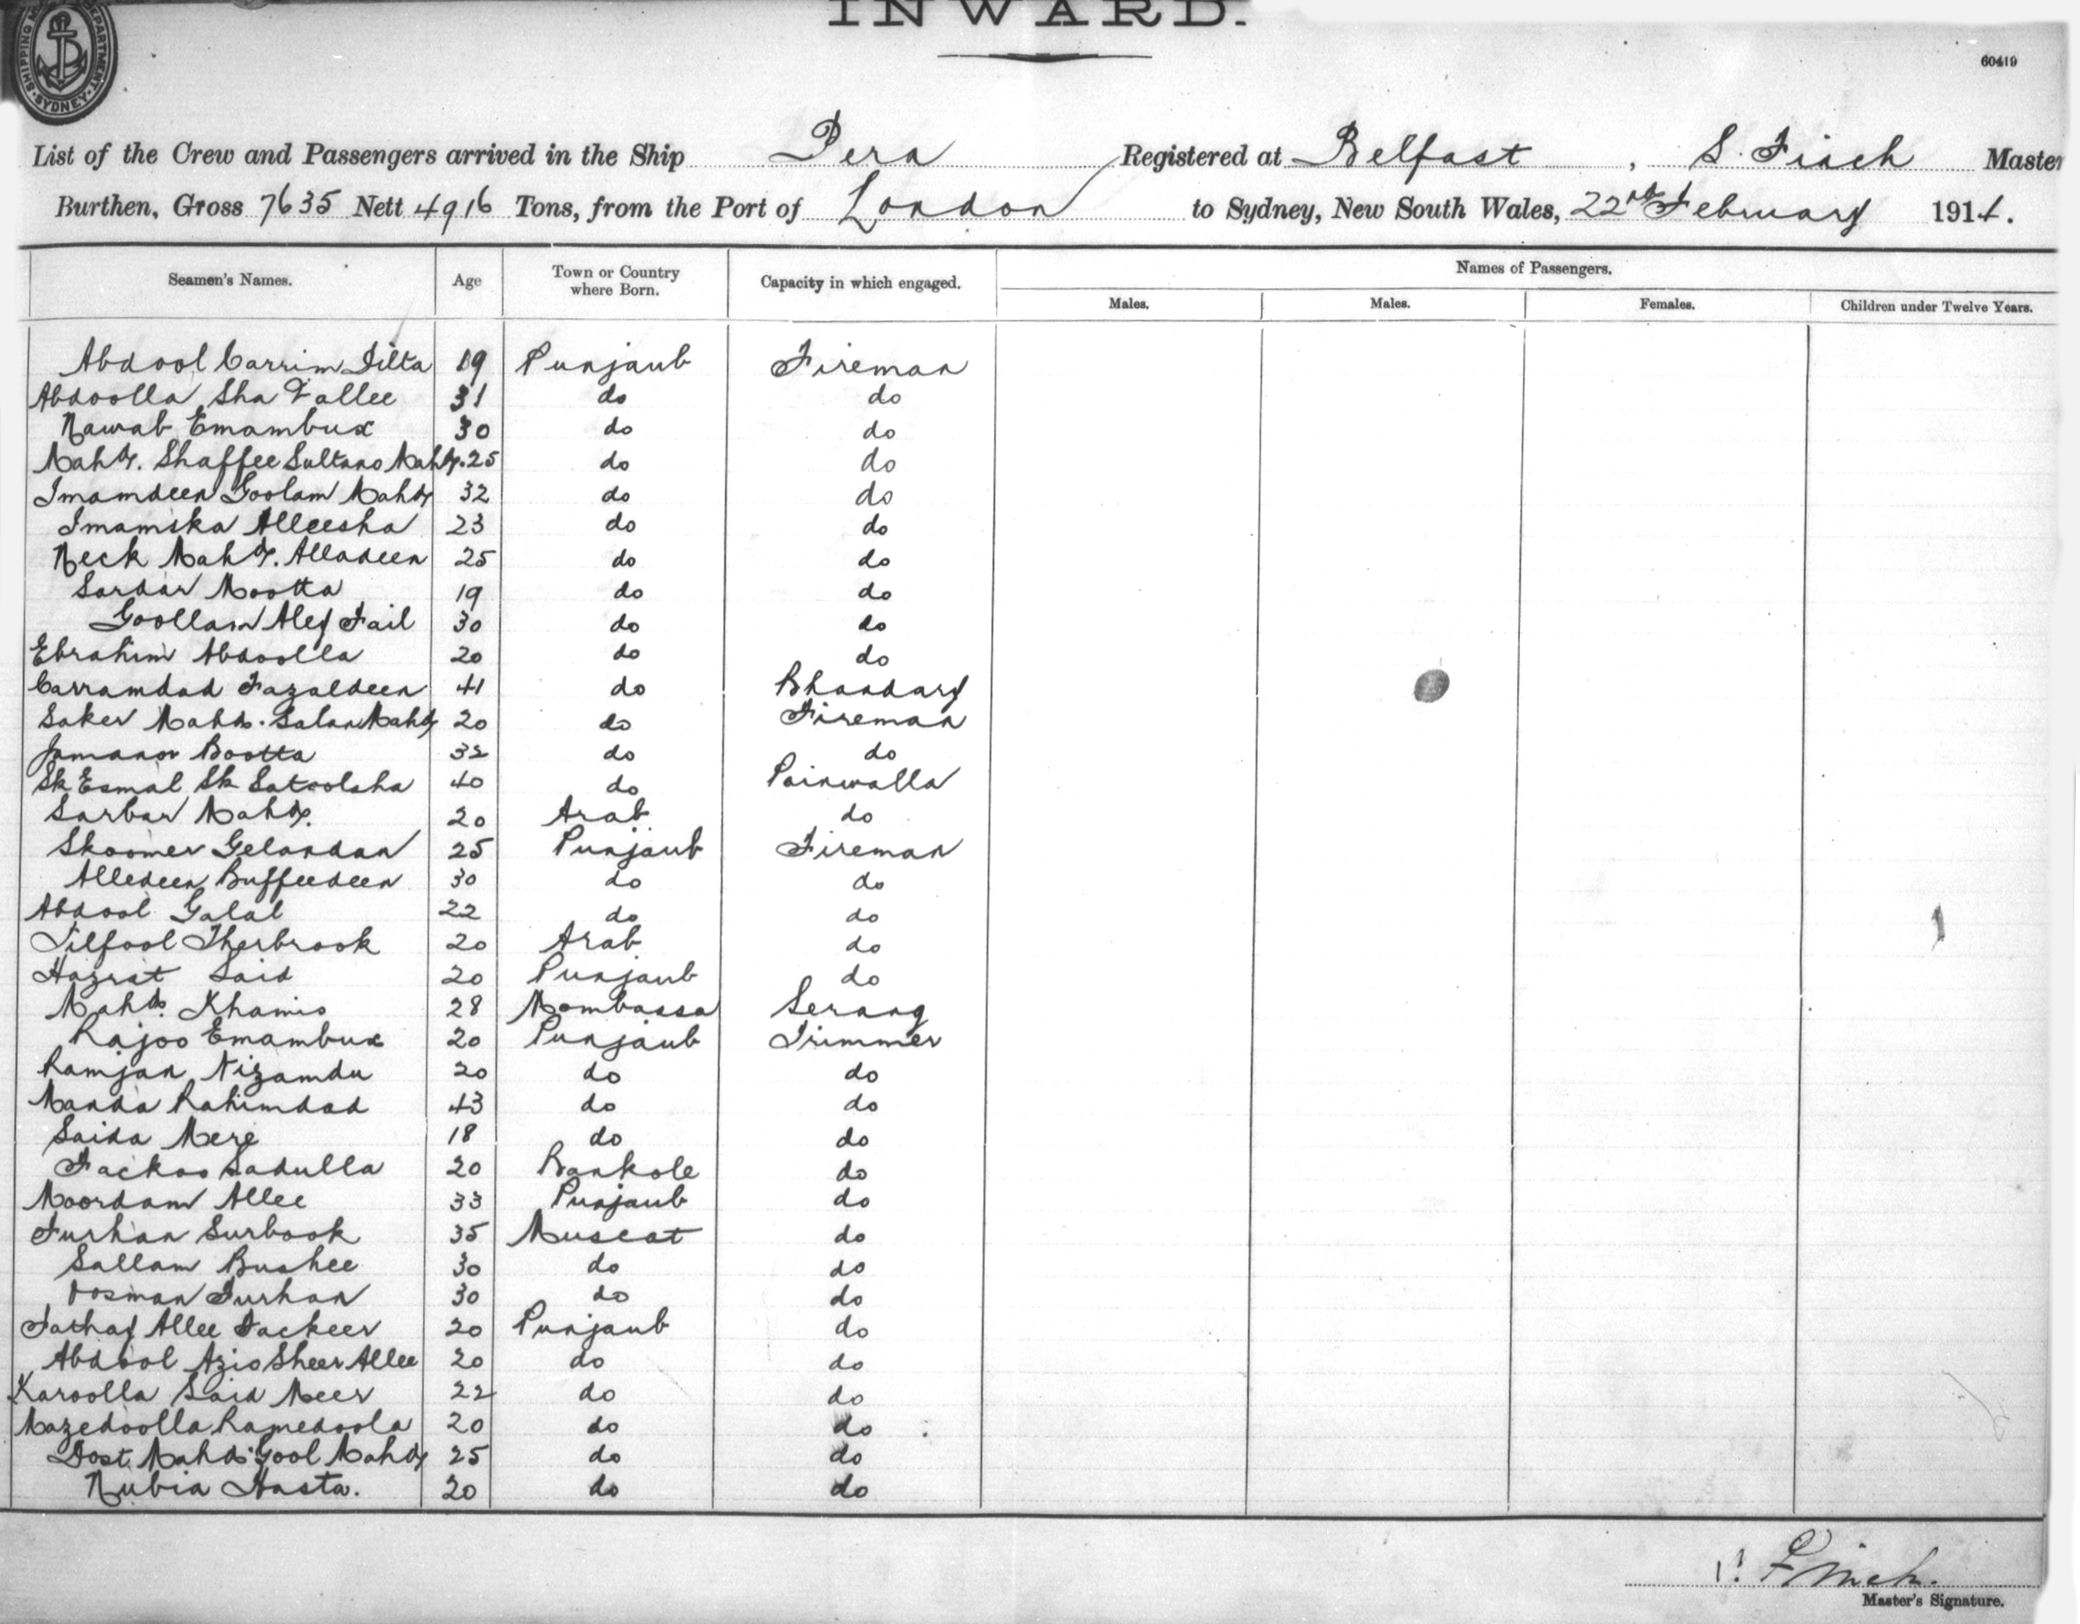 INWARD.
60419
SHIPPING DEPARTMENT SYDNEY
List of the Crew and Passengers arrived in the Ship Pera Registered at Belfast, S. Finch Master
Burthen, Gross 7635 Nett 4916 Tons, from the Port of London to Sydney, New South Wales, 22nd February 1914.
Seamen's Names. Age Town or Country where Born. Capacity in which engaged. Names of Passengers.
Males. Males. Females. Children under Twelve Years.
Abdool Carrim Jilta 19 Punjaub Fireman
Abdoolla Sha Fallee 31 do do
Nawab Emambux 30 do do
Mahd. Shaffee Sultano Mahd. 25 do do
Imamdeen Goolam Mahd 32 do do
Imamska Alleesha 23 do do
Neck Mahd. Alladeen 25 do do
Sardar Mootta 19 do do
Goollam Aley Fail 30 do do
Ebrahim Abdoolla 20 do do
Carramdad Fazaldeen 41 do Bhandary
Saker Mahd. Salan Mahd 20 do Fireman
Jamanor Bootta 32 do do
Sk Esmal Sk Satoolsha 40 do Painwalla
Sarbar Mahd. 20 Arab do
Skoomer Gelandan 25 Punjaub Fireman
Alledeen Buffeedeen 30 do do
Abdool Galal 22 do do
Tilfool Therbrook 20 Arab do
Hazrat Said 20 Punjaub do
Mahd. Khamis 28 Mombassa Serang
Rajoo Emambux 20 Punjaub Trimmer
Ramjan Nizamdu 20 do do
Manda Rahimdad 43 do do
Saida Meze 18 do do
Fackoo Sadulla 20 Bankole do
Noordam Allee 33 Punjaub do
Furhan Surbook 35 Muscat do
Sallam Bushee 30 do do
Oosman Furhan 30 do do
Fathay Allee Fackeer 20 Punjaub do
Abdool Azio Sheer Allee 20 do do
Karoolla Said Meer 22 do do
Mazedoolla Ramedoola 20 do do
Dost Mahd Gool Mahd 25 do do
Nubia Hasta. 20 do do
S. Finch.
Master's Signature.